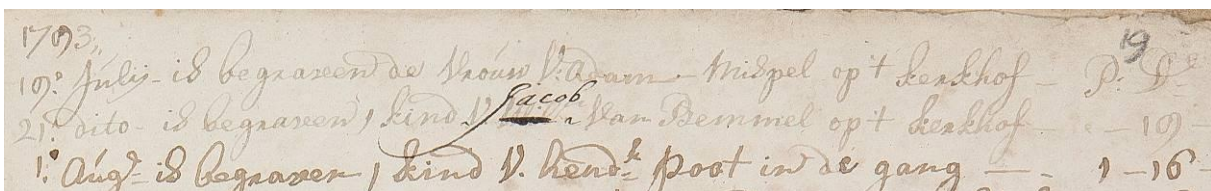 1793„ 19
19: Julij - is begraven de Vrouw V: Adam - Mispel op 't kerkhof - P: D
21: dito - is begraven 1 kind V. Jacob Van Bemmel op 't kerkhof - - 19 -
1: Augs - is begraven 1 kind V. Hendk Poot in de gang - - 1 - 16